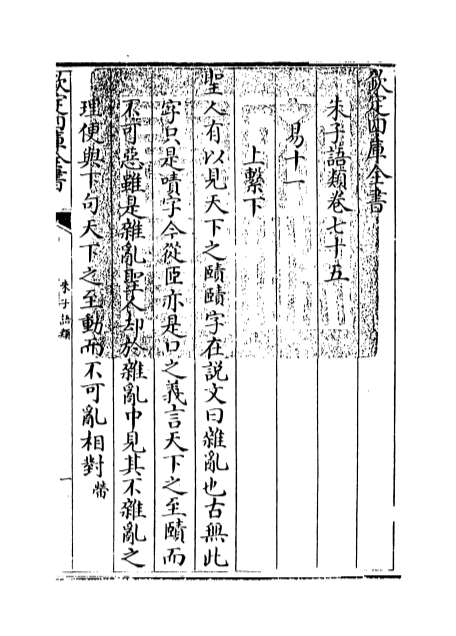 欽定四庫全書
朱子語類卷七十五
易十一
上繫下
聖人有以見天下之賾賾字在說文曰雜亂也古無此
字只是嘖字今從𦣞亦是口之義言天下之至賾而
不可惡雖是雜亂聖人却於雜亂中見其不雜亂之
理便與下句天下之至動而不可亂相對㽦
欽定四庫全書
朱子語類
一